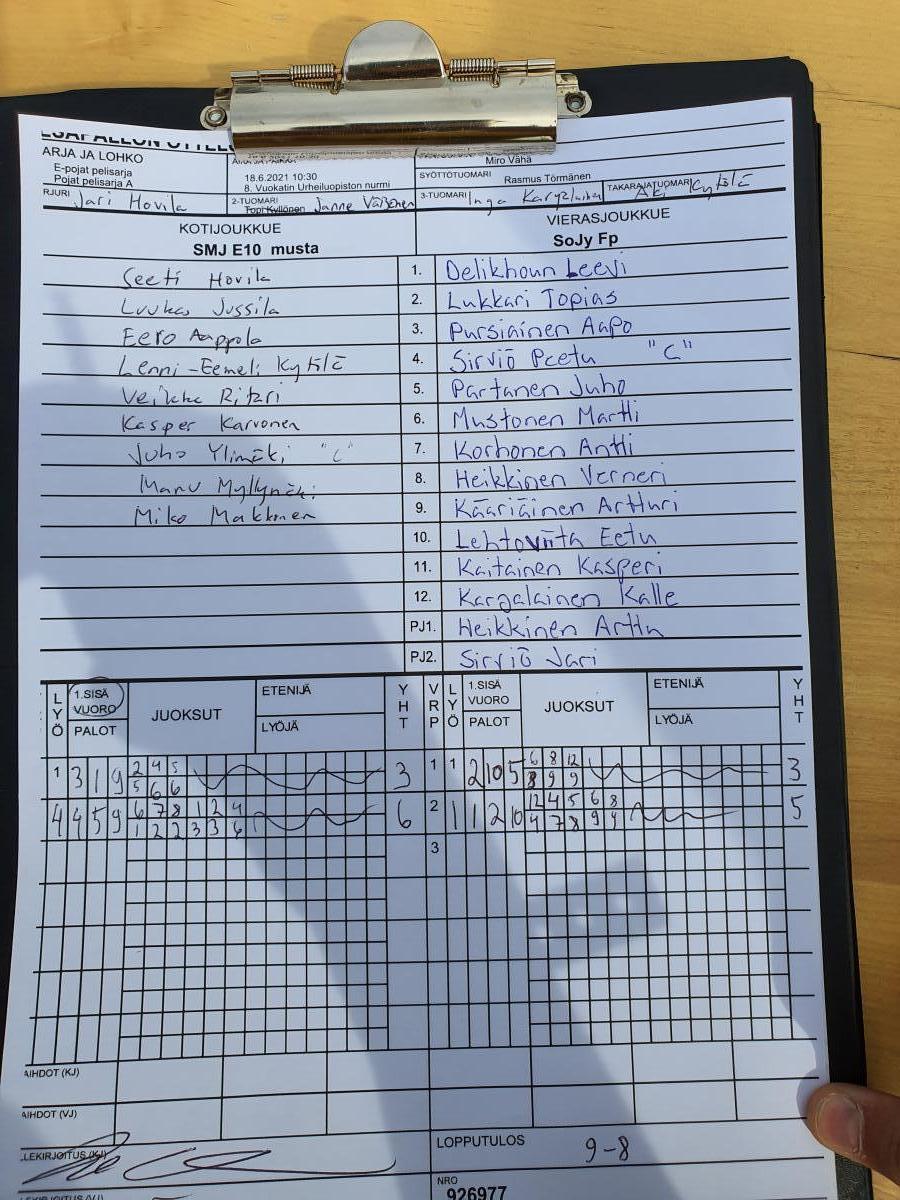 ARJA JA LOHKO
E-pojat pelisarja
Pojat pelisarja A
18.6.2021 10:30
8. Vuokatin Urheiluopiston nurmi
Miro Vähä
SYÖTTÖTUOMARI Rasmus Törmänen
RJURI Jari Hovila
2-TUOMARI Topi Kyllönen Janne Väisänen
3-TUOMARI Inga
TAKARAJATUOMARI Aki Kytölä
KOTIJOUKKUE
SMJ E10 musta
VIERASJOUKKUE
SoJy Fp
Seeti Hovila 1. Delikhoun Leevi
Luukas Jussila 2. Lukkari Topias
Eero Aappola 3. Pursiainen Aapo
Lenni-Eemeli Kytölä 4. Sirviö Peetu "C"
Veikka Ritari 5. Partanen Juho
Kasper Karvonen 6. Mustonen Martti
Juho Ylimäki "C" 7. Korhonen Antti
Manu Myllymäki 8. Heikkinen Verneri
Miko Makkonen 9. Kääriäinen Artturi
10. Lehtoviita Eetu
11. Kaitainen Kasperi
12. Karjalainen Kalle
PJ1. Heikkinen Arttu
PJ2. Sirviö Jari
LYÖ 1.SISÄ VUORO PALOT JUOKSUT ETENIJÄ LYÖJÄ YHT VRP LYÖ 1.SISÄ VUORO PALOT JUOKSUT ETENIJÄ LYÖJÄ YHT
1 3 1 9 2 4 5 3 1 1 2 10 5 6 8 12 3
5 6 6 8 9 9
4 4 5 9 6 7 8 1 2 4 6 2 1 1 2 10 12 4 5 6 8 5
1 2 2 3 3 6 4 7 8 9 9
3
AIHDOT (KJ)
AIHDOT (VJ)
LEKIRJOITUS (KJ)
LOPPUTULOS 9-8
LEKIRJOITUS (VJ)
NRO
926977